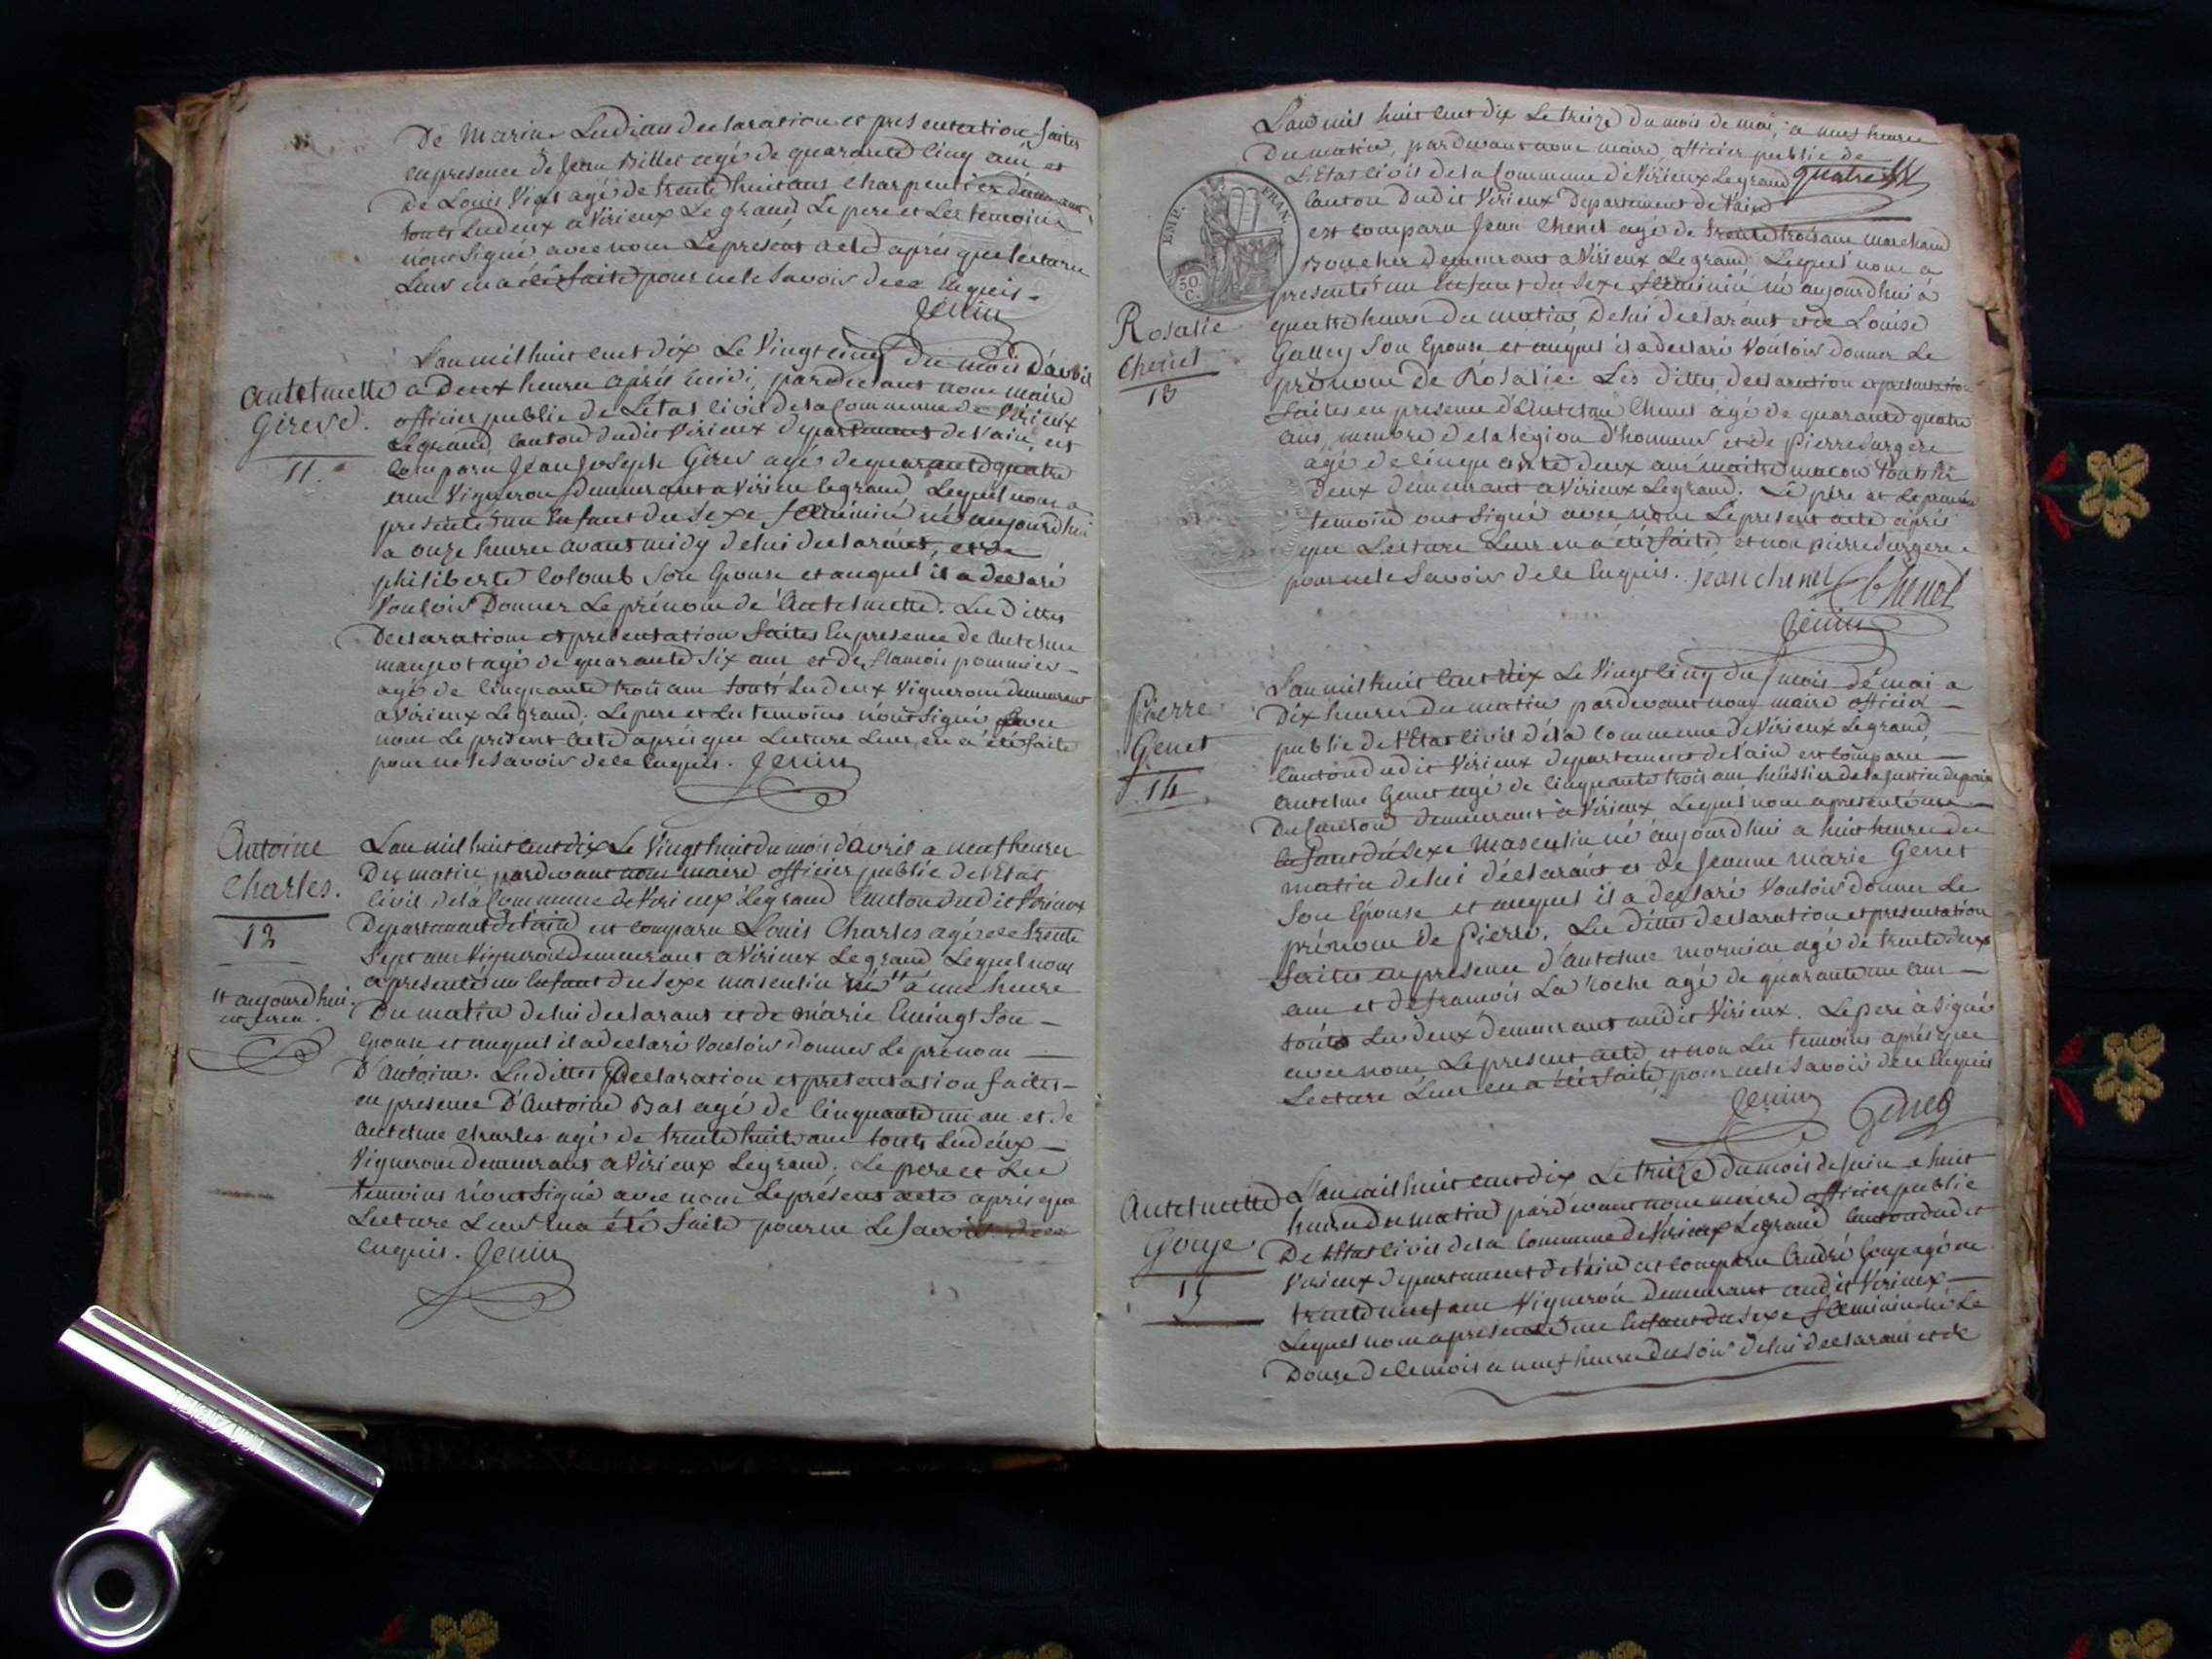 De Marie. Les Dittes declaration et presentation faites
en presence de Jean Billet agé de quarante cinq ans et
de Louis Viget agé de trente huit ans Charpentier demeurant
touts les deux a Virieux Le grand, Le pere et Les temoins
n'ont Signé avec nous Le present acte après que lecture
Leur en a été faite pour ne le Savoir de ce Enquis.
Jenin
L'an mil huit cent dix Le Vingt cinq du mois d'avril
Antelmette
Girerd.
11.
a deux heures après midi, pardevant nous maire
officier public de L'Etat Civil de la Commune de Virieux
Legrand, Canton dudit Virieux departement de l'ain, est
Comparu Jean Joseph Girer agé de quarante quatre
ans Vigneron demeurant a Virieu legrand, Lequel nous a
presenté un Enfant du Sexe féminin né aujourdhui
a onze heures avant midy de lui declarant, et de
philiberte Colomb Son Epouse et auquel il a declaré
Vouloir Donner Le prénom de Antelmette. Les Dittes
Declaration et presentation faites En presence de Antelme
maujot agé de quarante Six ans et de francois pommier
agé de Cinquante trois ans touts Les deux Vignerons demeurant
a Virieux Legrand; Le pere et Les temoins n'ont Signé avec
nous Le present acte après que Lecture Leur en a été faite
pour ne le Savoir de ce Enquis. Jenin
Antoine
Charles.
12
et aujourdhui.
L'an mil huit cent dix Le Vingt huit du mois d'avril a neuf heures
Du matin, pardevant nous maire officier public de l'Etat
Civil de la Commune de Virieux Legrand Canton dudit Virieux
Departement de l'ain est Comparu Louis Charles agé de trente
Sept ans Vigneron Demeurant a Virieux Le grand Lequel nous
a presenté un Enfant du Sexe masculin né a une heure
Du matin de lui declarant et de marie Emingt Son
Epouse et auquel il a declaré Vouloir donner Le prénom
D'Antoine. Les dittes Declaration et presentation faites
en presence D'Antoine Bal agé de Cinquante un an et de
Antelme Charles agé de trente huit ans touts Les deux
Vignerons demeurant a Virieux Legrand; Le pere et Les
temoins n'ont Signé avec nous Le présent acte après que
Lecture Leur en a été faite pour ne Le Savoir de ce
Enquis. Jenin
L'an mil huit cent dix Le treize du mois de mai, a neuf heures
Du matin, pardevant nous maire, officier public de
L'Etat Civil de la Commune de Virieux Legrand quatre
Canton Dudit Virieux Departement de l'ain
EMP. FRAN.
50 C.
Rosalie
Chenet
13
est comparu Jean Chenet agé de trente trois ans marchand
Boucher demeurant a Virieux Legrand. Lequel nous a
presenté un Enfant du Sexe féminin né aujourd'hui a
quatre heures du matin, De lui declarant et de Louise
Galley Son Epouse et auquel il a declaré Vouloir donner Le
prénom de Rosalie. Les dittes declaration et presentation
faites en presence d'Antelme Chenet agé de quarante quatre
ans, membre de la légion d'honneur et de Pierre Surgere
agé de Cinquante deux ans maitre macon touts les
deux demeurant a Virieux Legrand. Le père et Le premier
temoin ont Signé avec nous Le present acte après
que Lecture Leur en a été faite, et non pierre Surgere
pour ne le Savoir de ce Enquis. Jean chenet Chenet
Jenin
Pierre
Genet
14
L'an mil huit Cent dix Le Vingt cinq du mois de mai a
Dix heures Du matin pardevant nous maire officier
public de l'Etat Civil de la Commune de Virieux Legrand,
Canton dudit Virieux departement de l'ain est Comparu
Antelme Genet agé de Cinquante trois ans huissier de la Justice de paix
Du Canton demeurant a Virieux Lequel nous a presenté un
Enfant du Sexe Masculin né aujourdhui a huit heures du
matin de lui déclarant et de Jeanne Marie Genet
Son Epouse et auquel il a declaré Vouloir donner Le
prénom de Pierre. Les Dittes declaration et presentation
faites en presence d'antelme mornieu agé de trente deux
ans et de francois La roche agé de quarante un ans
touts Les deux demeurant audit Virieux. Le pere a Signé
avec nous Le present acte, et non Les temoins après que
Lecture Leur en a été faite, pour ne le Savoir de ce Enquis
Jenin Genet
Antelmette
Gouje
15
L'an mil huit cent dix Le treize du mois de Juin a huit
heures Du matin pardevant nous maire officier public
De l'Etat civil de la Commune de Virieux Legrand Canton dudit
Virieux departement de l'ain est Comparu André Gouje agé de
trente neuf ans Vigneron demeurant audit Virieux
Lequel nous a presenté un Enfant du Sexe féminin né Le
Douze de ce mois a neuf heures Du Soir de lui declarant et de